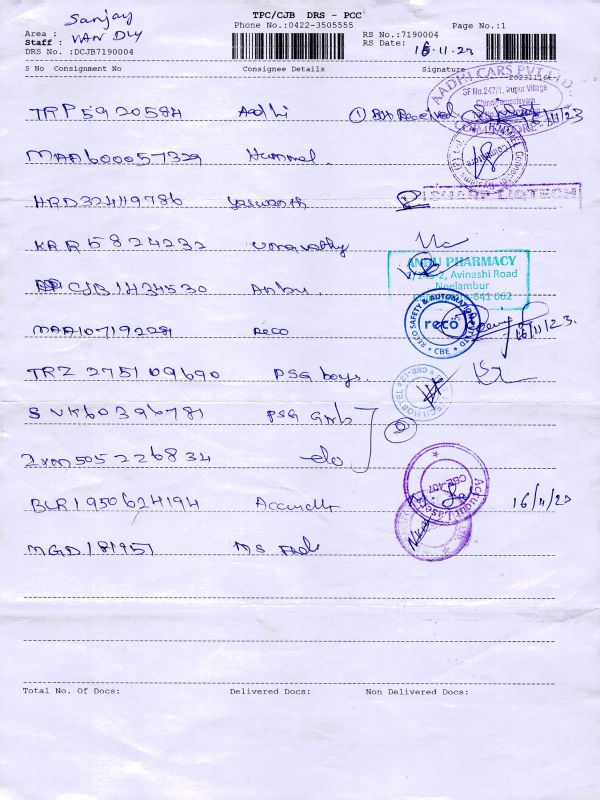 Sanjay
TPC/CJB DRS - PCC
Phone No.:0422-3505555
Page No.:1
Area :
Staff : VAN DLY
RS No.:7190004
DRS No. :DCJB7190004
RS Date: 16.11.23
S No Consignment No Consignee Details Signature
20231116
AADHI CARS PVT LTD.
SF No.247/1, Irugur Village
Chinniyampalayam
COIMBATORE
TRP5920584 Aadhi ① Received 16/11/23
MAA600057329 Hummel
HRD324119786 Yaswanth
SHARP LIQTECH
KAR5824232 Umavathy
ANBU PHARMACY
Avinashi Road
Neelambur
641 062
CJB1434530 Anbu.
RECO SAFETY & AUTOMATION
reco
CBE
MAA107192221 Reco 16/11/23.
TRZ 275109690 PSG boys.
SVK60396781 PSG Girls
IXM505226834 do
BLR1950624194 16/11/23
CBE-407
MGD181951 MS
Total No. Of Docs: Delivered Docs: Non Delivered Docs: